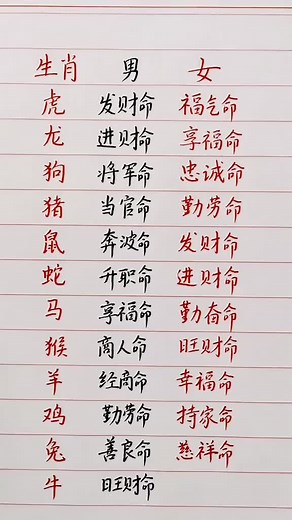 生肖 男 女
虎 发财命 福气命
龙 进财命 享福命
狗 将军命 忠诚命
猪 当官命 勤劳命
鼠 奔波命 发财命
蛇 升职命 进财命
马 享福命 勤奋命
猴 商人命 旺财命
羊 经商命 幸福命
鸡 勤劳命 持家命
兔 善良命 慈祥命
牛 旺财命